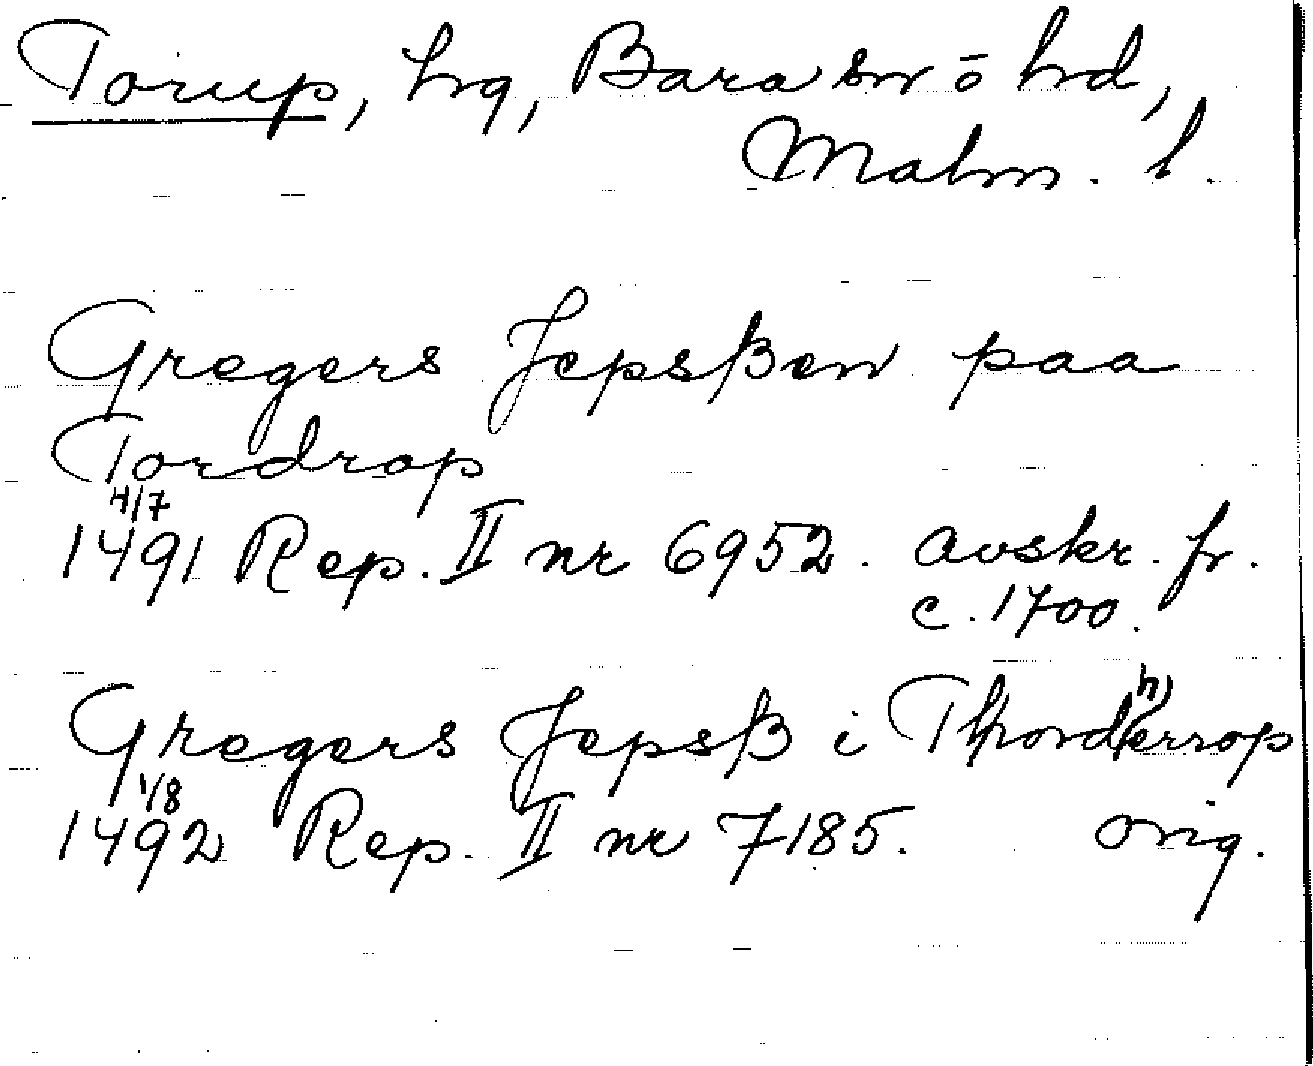 Torup, hg, Bara sn ō hd,
Malm. l.
Gregers Jepsßen paa
Tordrop
4/7
1491 Rep. II nr 6952. avskr. fr.
c. 1700.
Gregers Jepsß i
1/8
1492 Rep. II nr 7185. orig.